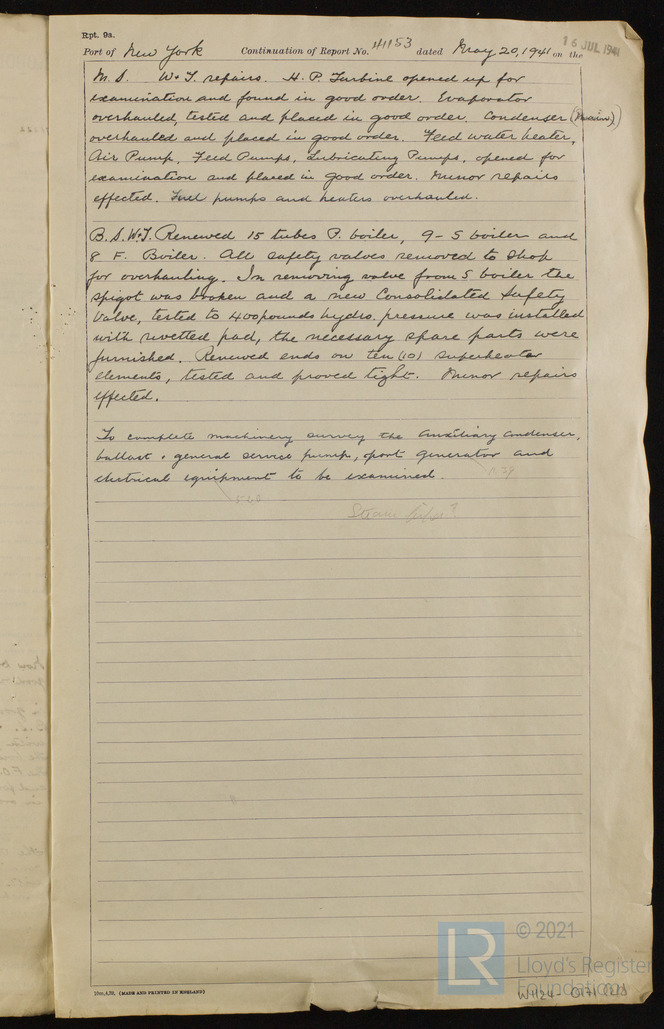 Rpt. 9a.
Port of New York Continuation of Report No. 41153 dated May 20, 1941 on the
16 JUL 1941
M.S. W&T. repairs. H.P. Turbine opened up for
examination and found in good order. Evaporator
overhauled, tested and placed in good order. Condenser (Main)
overhauled and placed in good order. Feed water heater,
Air Pump, Feed Pumps, Lubricating Pumps, opened for
examination and placed in good order. Minor repairs
effected. Fuel pumps and heaters overhauled.
B.S. W&T. Renewed 15 tubes P. boiler, 9 - S boiler and
8 F. Boiler. All safety valves removed to shop
for overhauling. In removing valve from S boiler the
spigot was broken and a new Consolidated Safety
Valve, tested to 400 pounds hydro. pressure was installed
with rivetted pad, the necessary spare parts were
furnished. Renewed ends on ten (10) superheater
elements, tested and proved tight. Minor repairs
effected.
To complete machinery survey the Auxiliary Condenser,
ballast & general service pump, port generator and
electrical equipment to be examined.
Steam
(MADE AND PRINTED IN ENGLAND)
LR
© 2021
Lloyd's Register
Foundation
W1124-0171